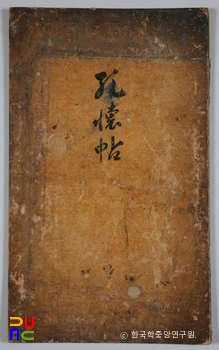 孔懷帖
© 한국학중앙연구원